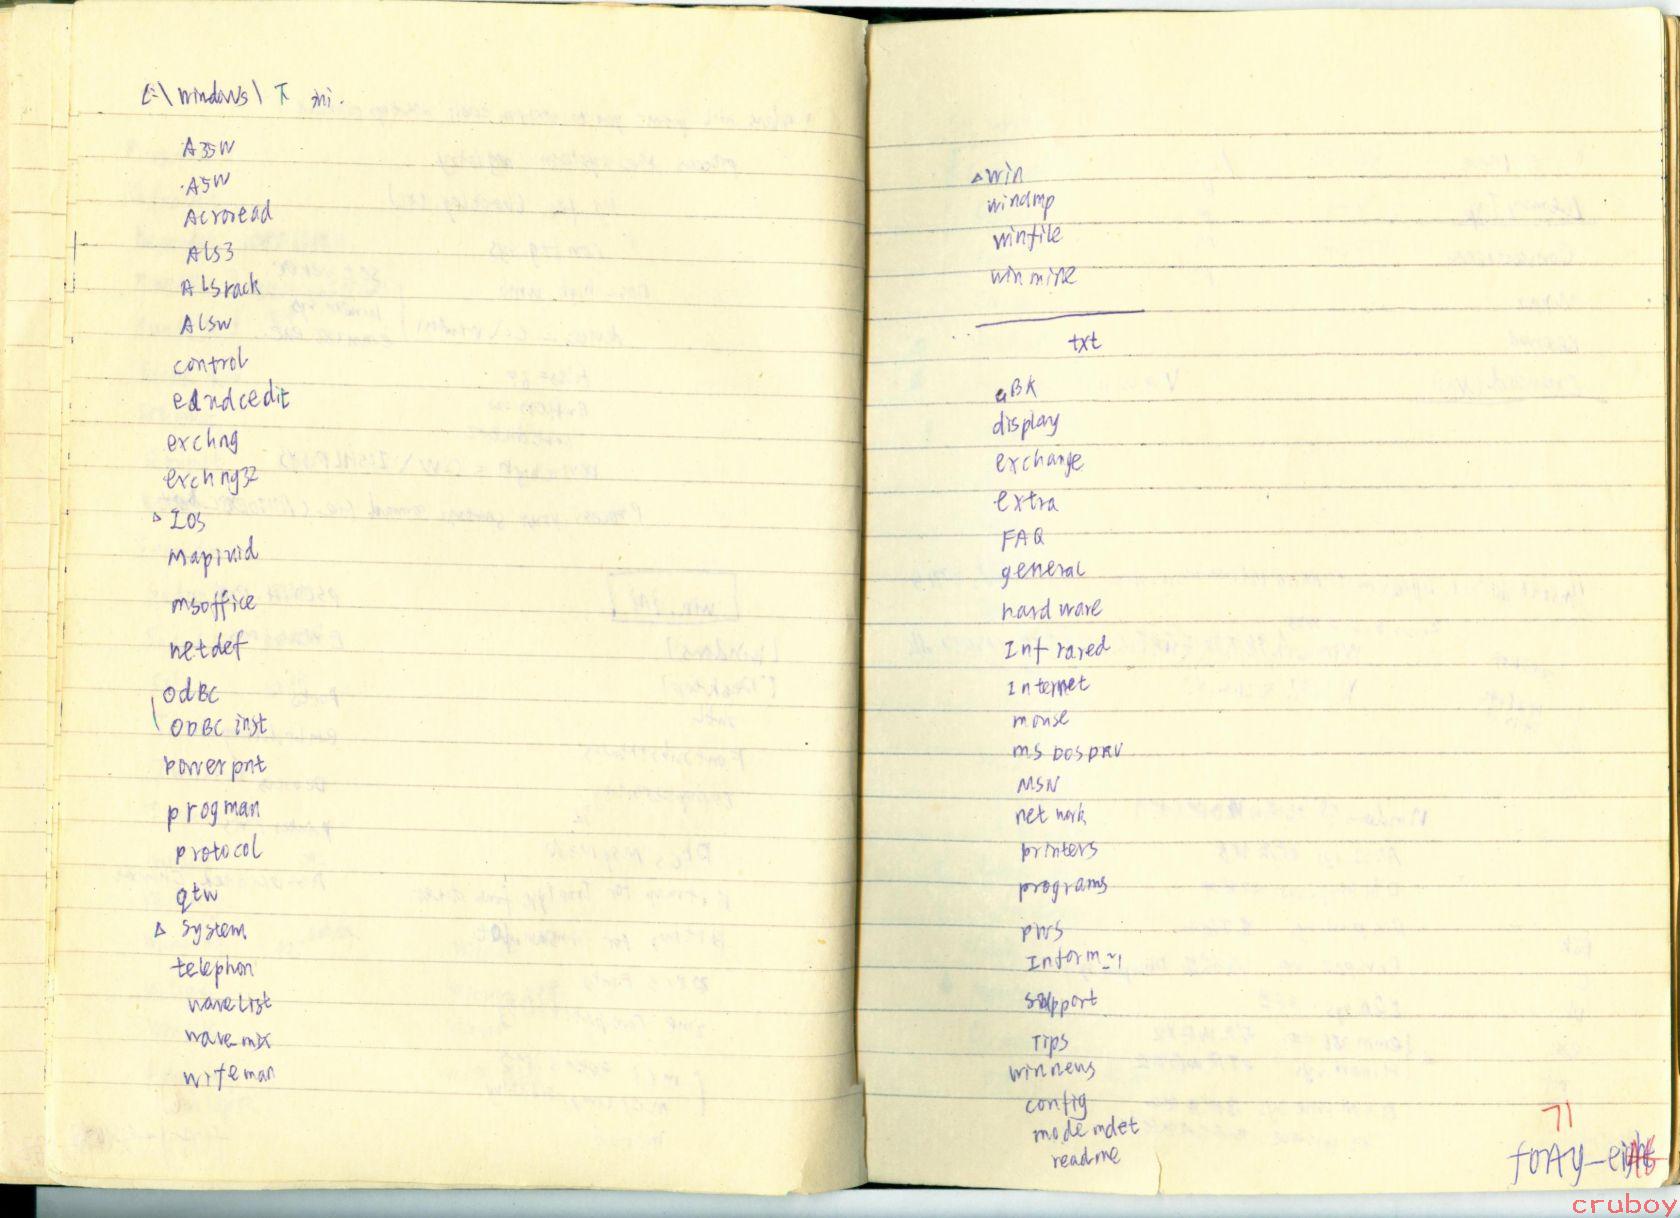 C:\windows\ 下 ini.
A35W
A5W
Acroread
ALS3
ALSrack
ALSW
control
exchng
exchng32
△ IOS
Mapiuid
msoffice
netdef
ODBC
ODBC inst
Powerpnt
progman
protocol
qtw
△ System
telephon
wavelist
wavemix
△ win
windmp
winfile
winmine
txt
display
exchange
extra
FAQ
general
hardware
Infrared
Internet
mouse
msDOSDRV
MSN
network
printers
programs
pws
Inform~1
support
Tips
winnews
config
modemdet
readme
71
forty-eight
cruboy